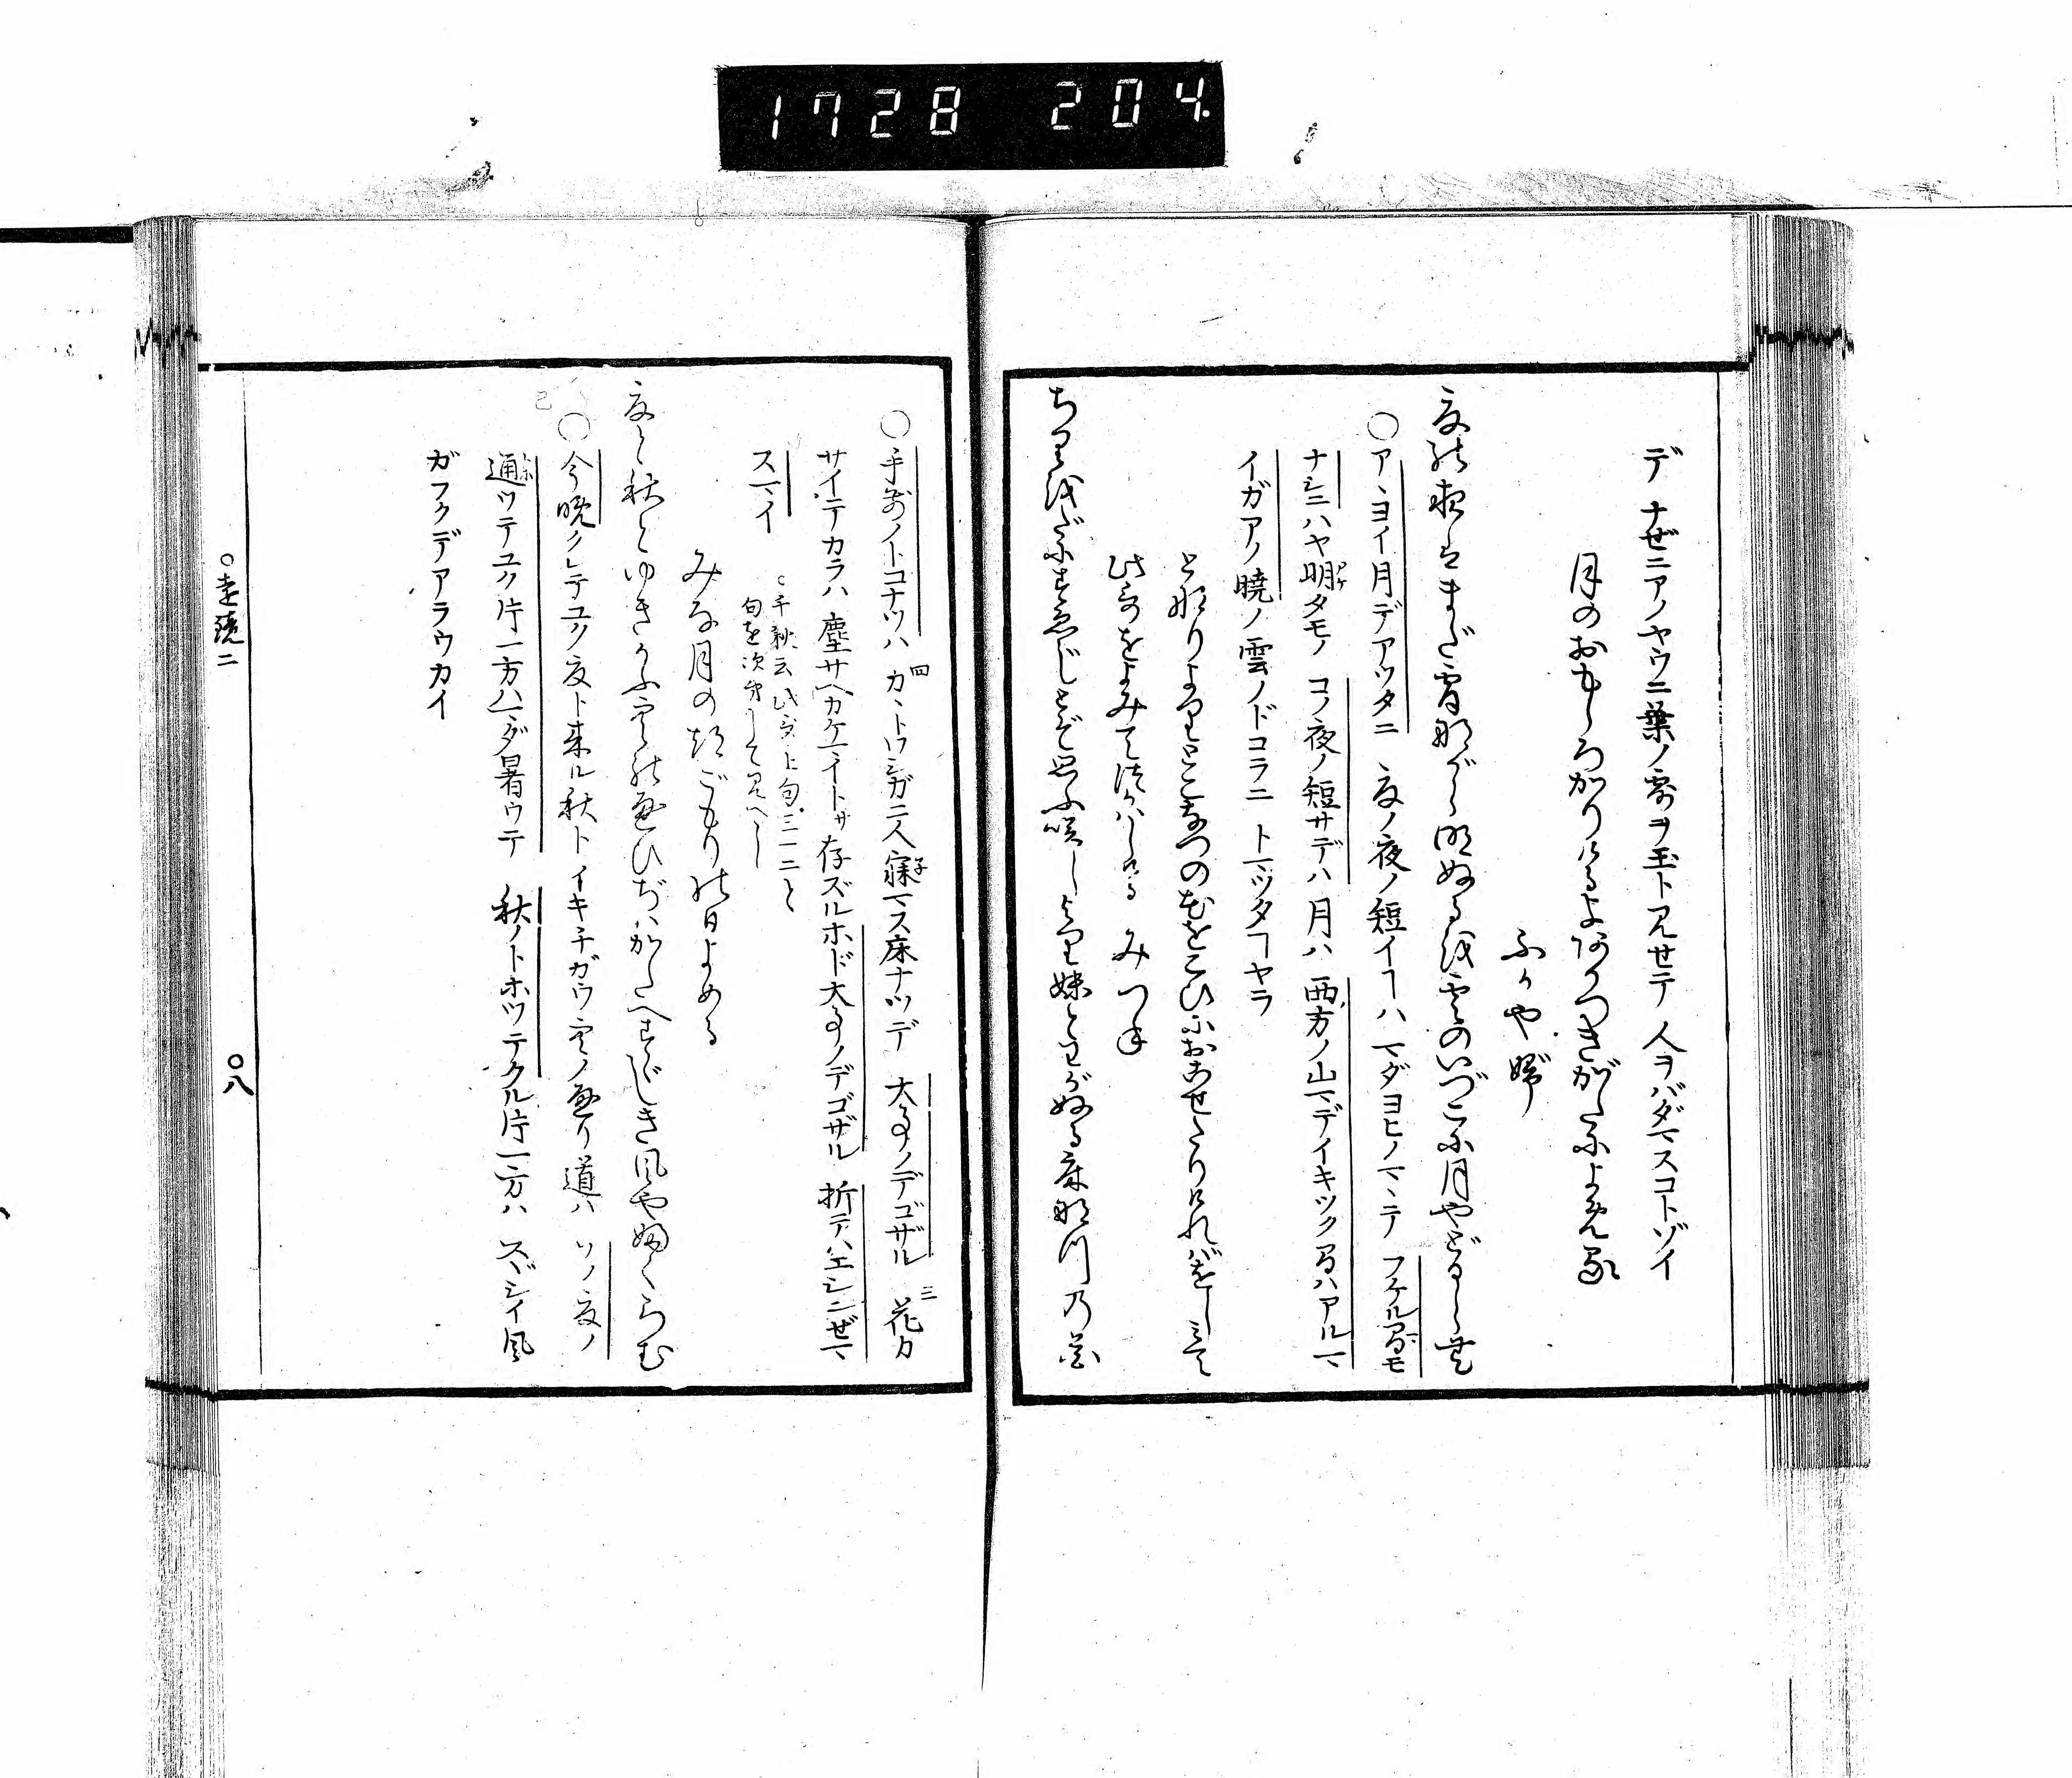 1728 204
デ ナゼニアノヤウニ葉ノ露ヲ玉ト見せテ 人ヲバダマスコトゾイ
月のおもしろかりける夜あかつきがたによめる
ふかやぶ
夏の夜はまだ宵ながら明ぬるを雲のいづこに月やどるらむ
○アヽヨイ月デアツタニ 夏ノ夜ノ短イヿハ マダヨヒノマヽデ フケル間モ
ナシニハヤ明タモノ コノ夜ノ短サデハ 月ハ 西方ノ山マデイキツク間ハアルマ
イガアノ暁ノ雲ノドコラニ トマツタヿヤラ
となりよりとこなつの花をこひにおこせたりければをしみて
此哥をよみてつかはしける みつね
ちりをだにすゑじとぞ思ふ咲しより妹とわがぬる床夏乃花
○手前ノトコナツハ 四カヽトワシガ二人寐マス床ナツデ 大事ノデゴザル 三花ガ
サイテカラハ 塵サヘカケマイトサ存ズルホド大事ノデゴザル 折テハエシンぜマ
スマイ
○千秋云此哥上句三一二と
句を次第して見べし
みな月の晦ごもりの日よめる
夏と秋とゆきかふ空の通ひぢはかたへすゞしき風やふくらむ
○今晩クレテユク夏ト来ル秋ト イキチガウ空ノ通リ道ハ ソノ夏ノ
通ツテユク片一方ハマダ暑ウテ 秋ノトホツテクル片一方ハ スヾシイ風
ガフクデアラウカイ
○遠鏡二
○八